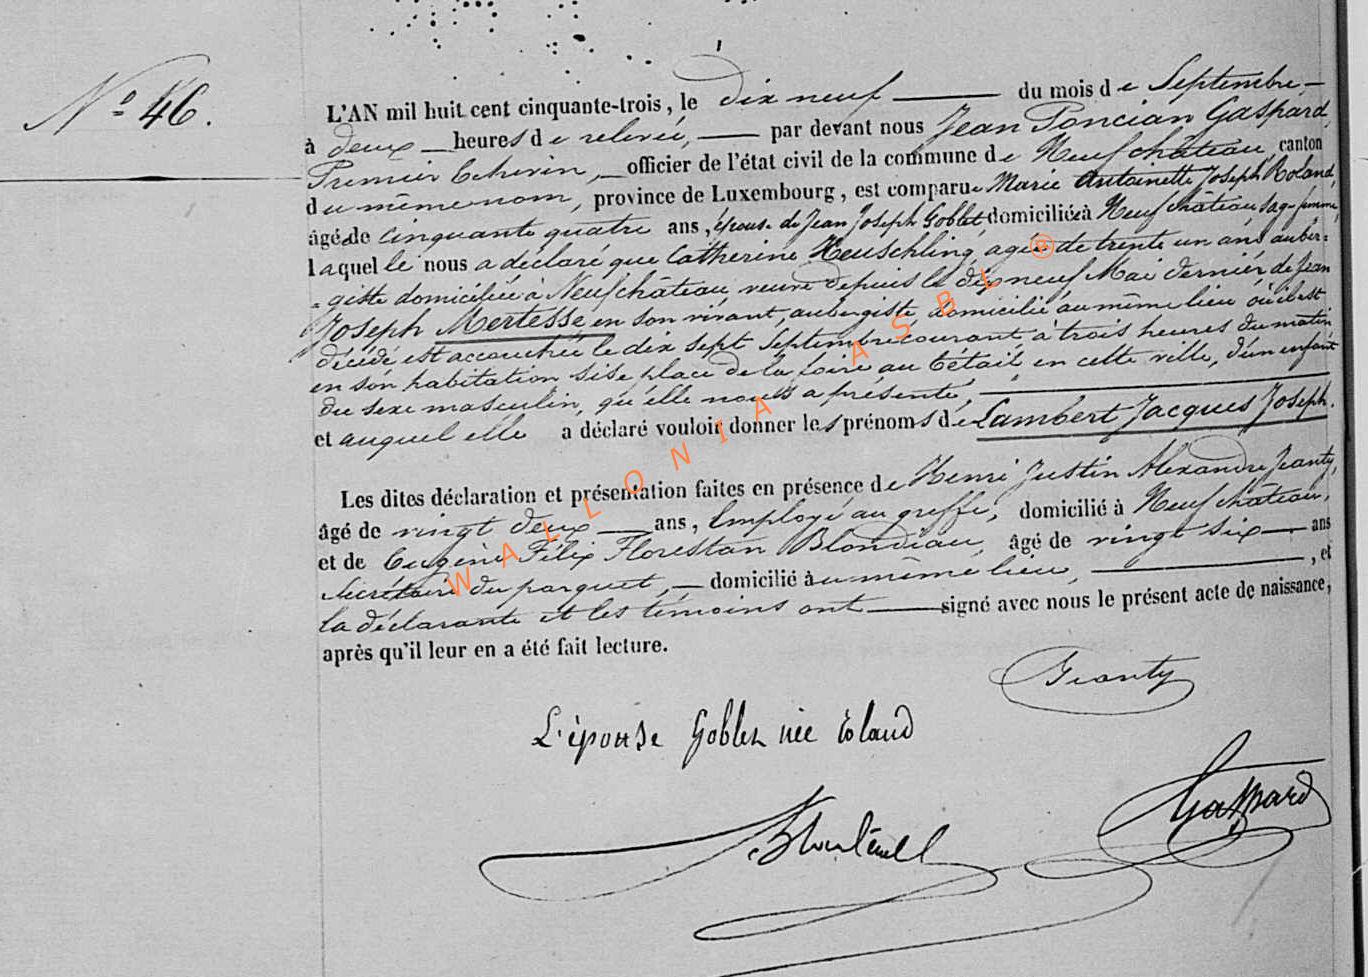 N° 46.
L'AN mil huit cent cinquante-trois, le dix neuf du mois de Septembre
à deux heures de relevée, par devant nous Jean Poncian Gaspard,
Premier Echevin, officier de l'état civil de la commune de Neufchâteau, canton
du même nom, province de Luxembourg, est comparue Marie Antoinette Joseph Roland,
âgée de cinquante quatre ans, épouse de Jean Joseph Goblet, domiciliée à Neufchâteau, sage femme,
laquelle nous a déclaré que Catherine Heuschling, agée de trente un ans auber=
=giste domiciliée à Neufchâteau veuve depuis le dix neuf Mai dernier de Jean
Joseph Mertesse en son vivant, aubergiste, domicilié au même lieu où il est
décédé est accouchée le dix sept Septembre courant, à trois heures du matin
en son habitation sise place de la foire au bétail en cette ville, d'un enfant
du sexe masculin, qu'elle nous a présenté,
et auquel elle a déclaré vouloir donner les prénoms de Lambert Jacques Joseph.
Les dites déclaration et présentation faites en présence de Henri Justin Alexandre Jeanty,
âgé de vingt deux ans, Employé au greffe, domicilié à Neufchâteau,
et de Eugène Félix Florestan Blondiau, âgé de vingt six ans
Secrétaire du parquet, domicilié au même lieu, , et
la déclarante et les témoins ont signé avec nous le présent acte de naissance,
après qu'il leur en a été fait lecture.
Jeanty
L'épouse Goblet née Roland
Gaspard
WALLONIA ASBL ®